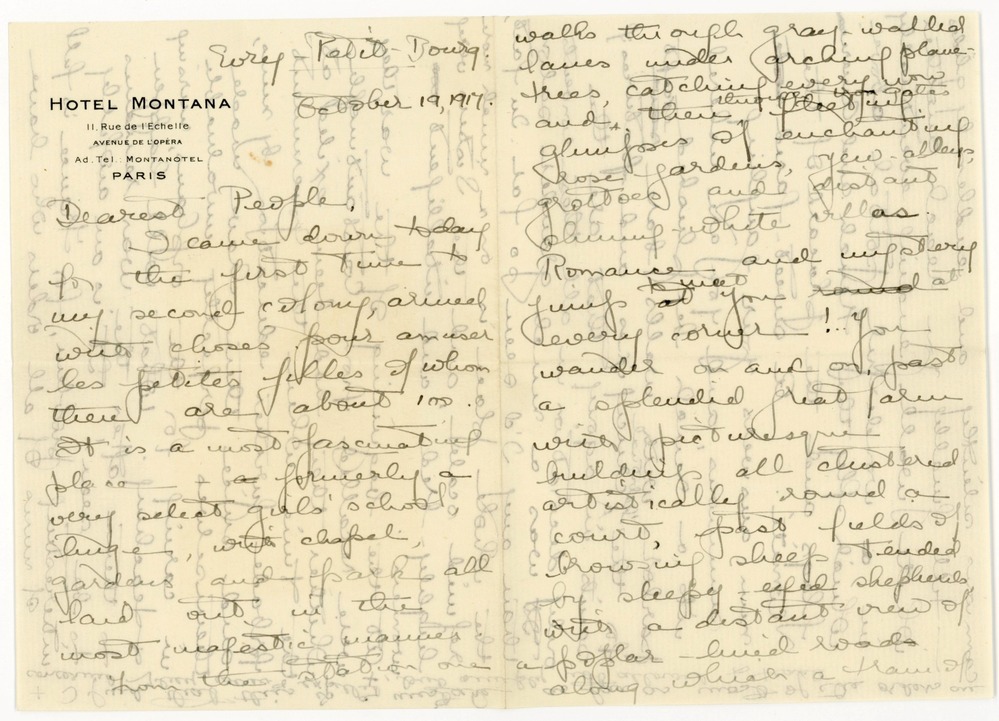 Evry Petit-Bourg.
October 19, 1917.
HOTEL MONTANA
11, Rue de l'Echelle
AVENUE DE L'OPÉRA
Ad. Tel.: MONTANOTEL
PARIS
Dearest People,
I came down today
for the first time to
my second colony, armed
with choses pour amuser
les petites filles of whom
there are about 100.
It is a most fascinating
place – a formerly a
very select girls' school,
huge, with chapel,
gardens and park all
laid out in the
most majestic manner.
From the station one
walks through gray-walled
lanes under arching plane-
trees, catching every now
and then through iron gates fleeting
glimpses of enchanting
rose gardens, yew-alleys,
grottoes and distant
shining-white villas.
Romance and mystery
jump at to meet you round at
every corner! .. You
wander on and on, past
a splendid great farm
with picturesque
buildings all clustered
artistically round a
court, past fields of
browsing sheep tended
by sleepy-eyed shepherds
with a distant view of
a poplar-lined roads
along which a tram of